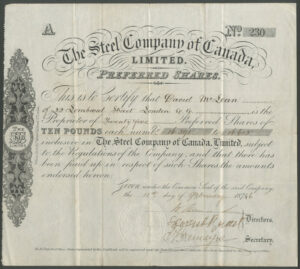 A
No 230
The Steel Company of Canada,
LIMITED.
PREFERRED SHARES.
This is to Certify that David McLean
of 23 Lombard Street London E.C. is the
Proprietor of Twenty five Preferred Shares of
TEN POUNDS each numbered
inclusive in The Steel Company of Canada, Limited, subject
to the Regulations of the Company, and that there has
been paid up in respect of such Shares the amounts
endorsed hereon.
Given under the Common Seal of the said Company
the day of 187
Directors.
Secretary.